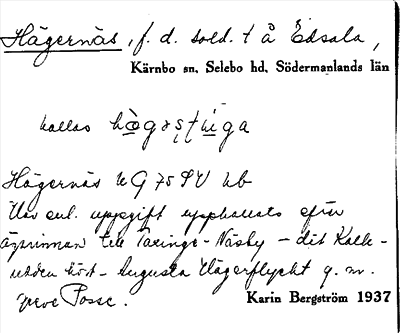 Hägernäs, f. d. sold. t å Edsala,
Kärnbo sn, Selebo hd, Södermanlands län
kallas
Hägernäs G 75 SV kb
Har enl. uppgift upphallats efter
till Taxinge-Näsby – dit
hört – Augusta Hägerflycht g. m.
Posse.
Karin Bergström 1937